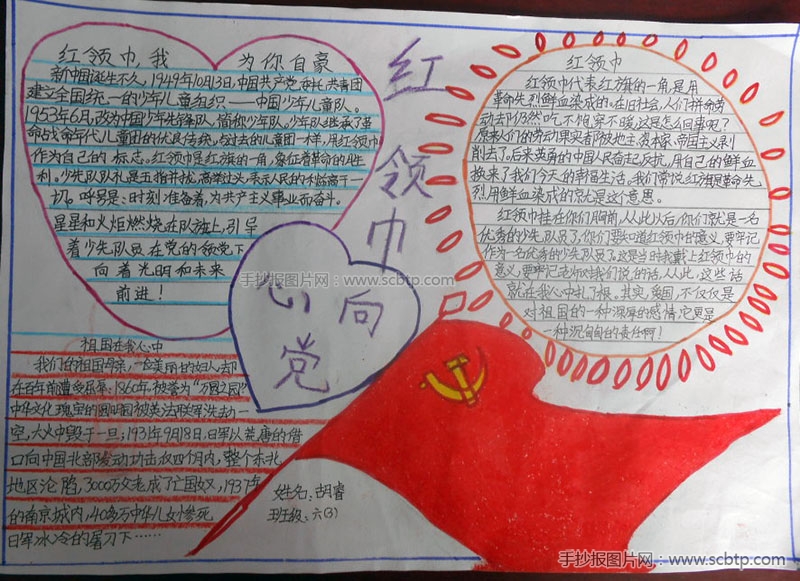 红领巾,我 为你自豪
新中国诞生不久,1949年10月13日,中国共产党委托共青团
建立全国统一的少年儿童组织——中国少年儿童队。
1953年6月,改为中国少年先锋队,简称少年队。少年队继承了革
命战争年代儿童团的优良传统,与过去的儿童团一样,用红领巾
作为自己的标志。红领巾是红旗的一角,象征着革命的胜
利。少先队队礼是五指并拢,高举过头,表示人民的利益高于一
切。呼号是:时刻准备着,为共产主义事业而奋斗。
星星和火炬燃烧在队旗上,引导
着少先队员在党的领党下
向着光明和未来
前进!
红领巾
心向党
红领巾
红领巾代表红旗的一角,是用
革命先烈鲜血染成的。在旧社会,人们拼命劳
动去却仍然吃不饱穿不暖,这是怎么回事呢?
原来人们的劳动果实都被地主、资本家、帝国主义剥
削去了,后来英勇的中国人民奋起反抗,用自己的鲜血
换来了我们今天的幸福生活。我们常说红旗是革命先
烈用鲜血染成的就是这个意思。
红领巾挂在你们胸前,从此以后,你们就是一名
优秀的少先队员了,你们要知道红领巾的意义,要牢记
作为一名优秀的少先队员了。这是当时我戴上红领巾的
意义,要牢记老师对我们说的话,从此,这些话
就在我心中扎了根。其实,爱国,不仅仅是
对祖国的一种深厚的感情,它更是
一种沉甸甸的责任啊!
祖国在我心中
我们的祖国母亲,一位美丽的妇人,却
在百年前遭受屈辱:1860年,被誉为“万园之园”
中华文化瑰宝的圆明园被英法联军洗劫一
空,大火中毁于一旦;1931年9月18日,日军以荒唐的借
口向中国北部发动功击,仅四个月内,整个东北
地区沦陷,3000万父老成了亡国奴,1937年
的南京城内,40多万中华儿女惨死
日军冰冷的屠刀下……
姓名:胡睿
班级:六(3)
手抄报图片网:www.scbtp.com
手抄报图片网:www.scbtp.com